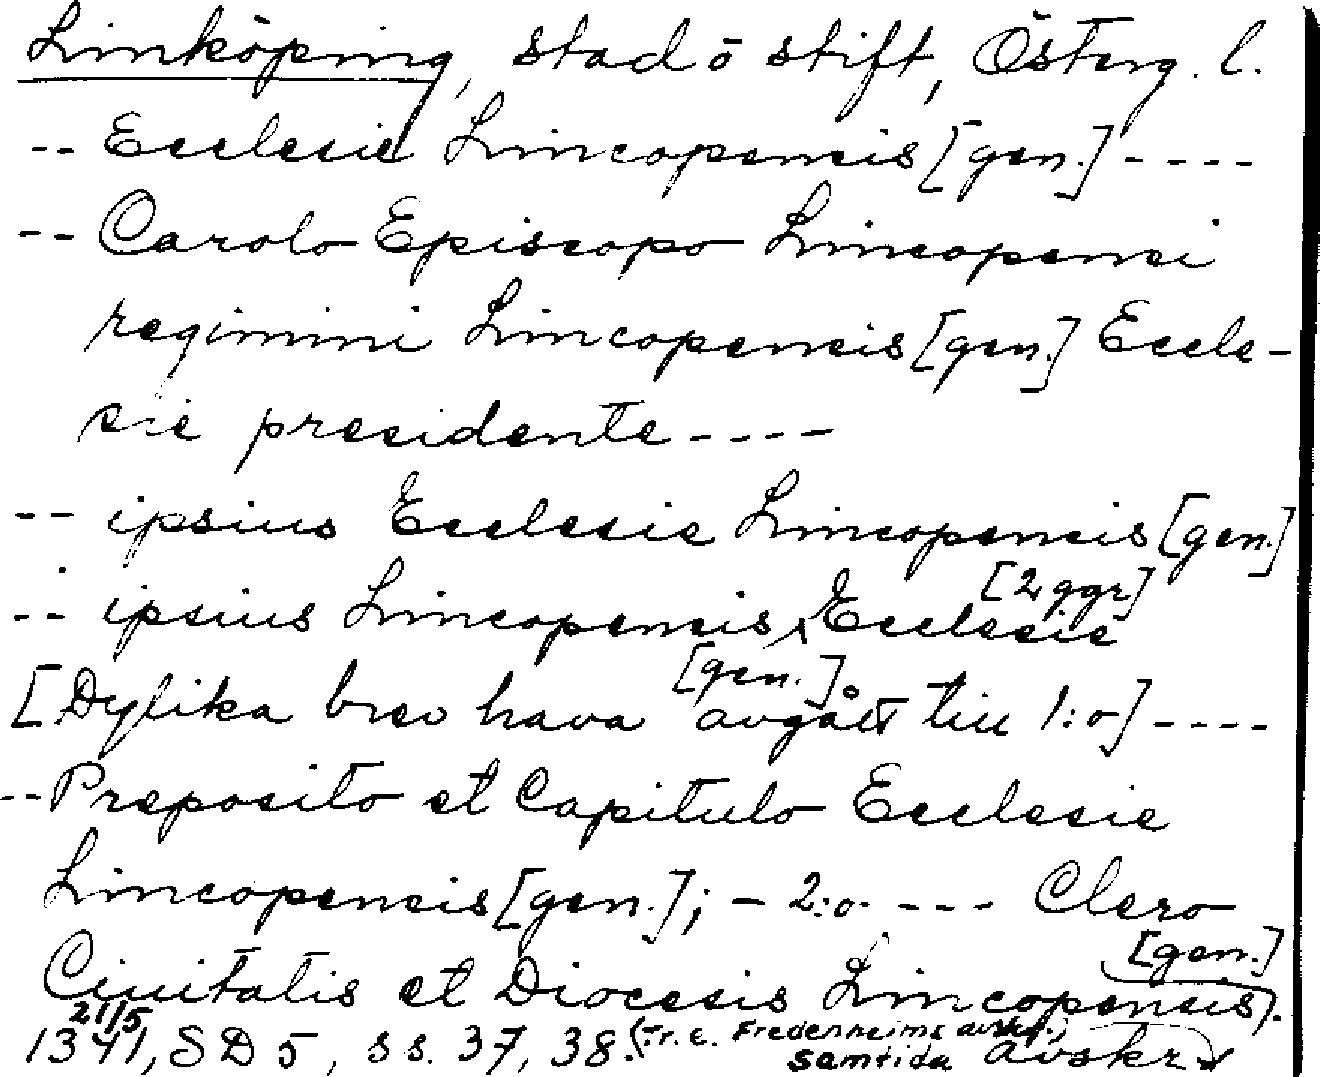 Linköping, stad o stift, Österg. l.
-- Ecclesie Lincopensis [gen.] ----
-- Carolo Episcopo Lincopensi
regimini Lincopensis [gen.] Eccle-
sie presidente ----
-- ipsius Ecclesie Lincopensis [gen.]
[2 ggr]
-- ipsius Lincopensis Ecclesie
[gen.]
[Dylika brev hava avgått till 1:o] ----
-- Preposito et Capitulo Ecclesie
Lincopensis [gen.]; - 2:o. --- Clero
[gen.]
Ciuitatis et Diocesis Lincopensis).
21/5
1341, SD 5, ss. 37, 38. (Tr. e. Fredenheims avskr.)
samtida avskr.